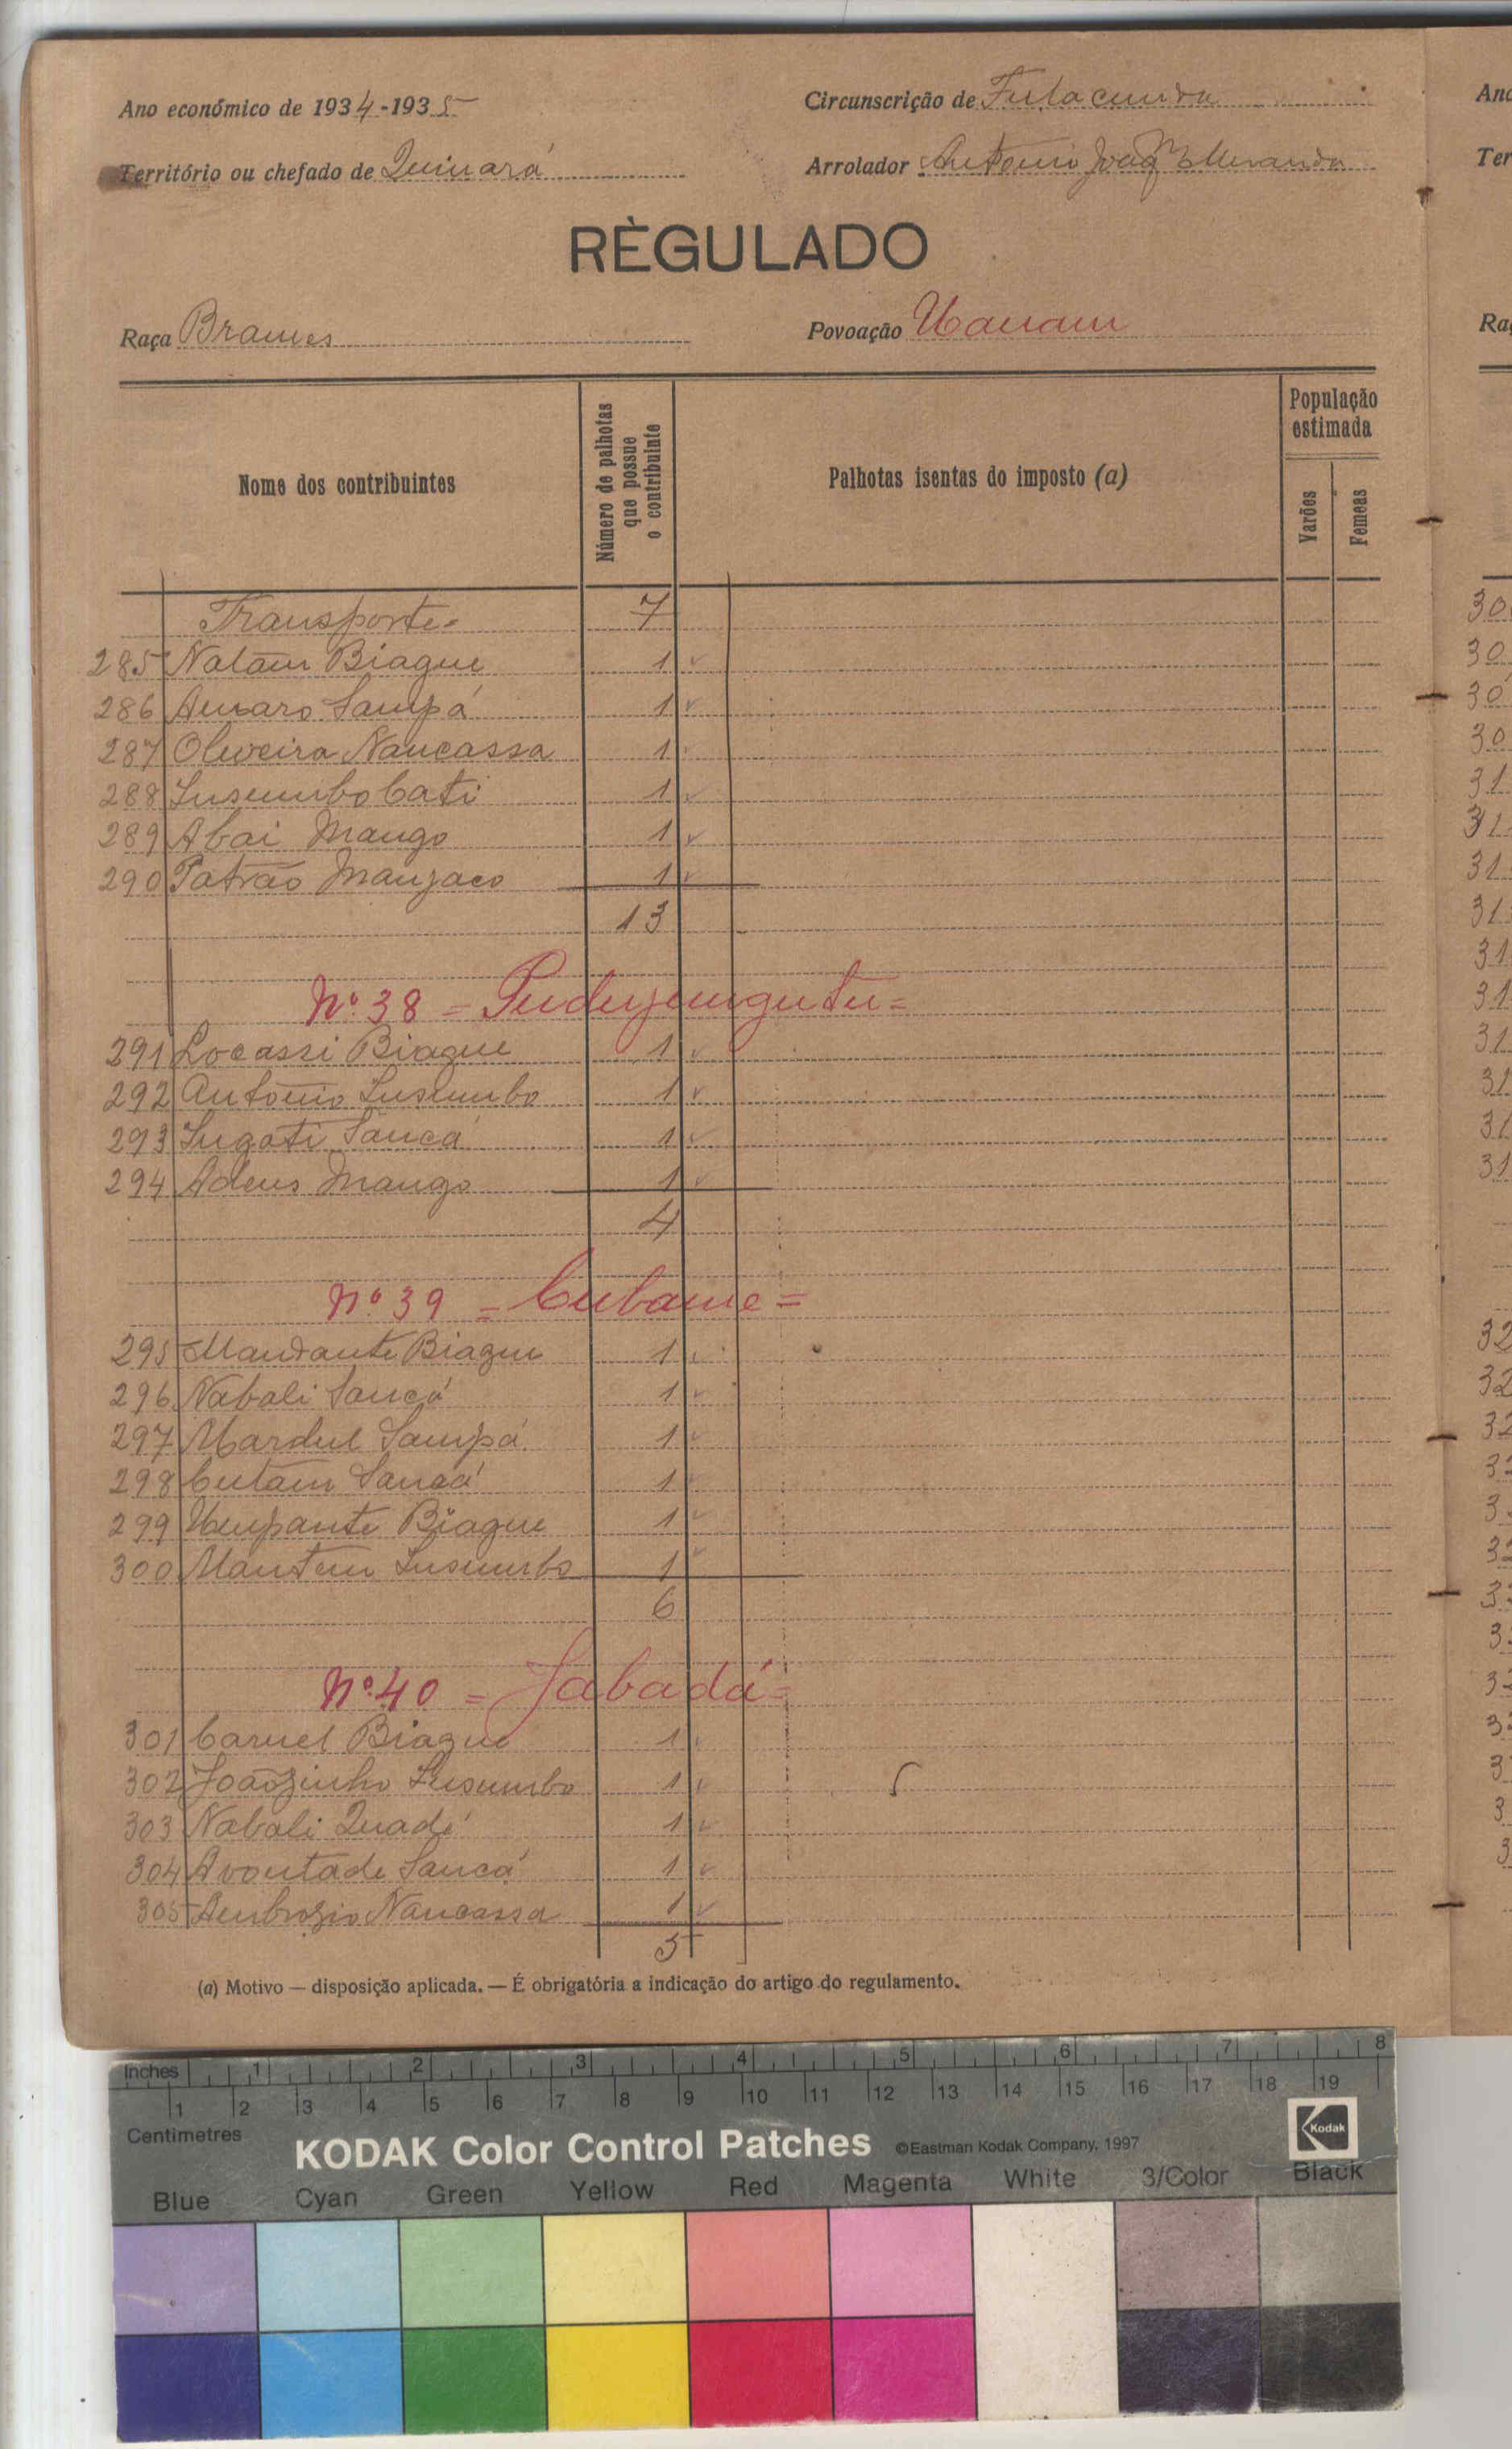 Ano económico de 1934-1935
Circunscrição de Fulacunda
Território ou chefado de Quinará
Arrolador António Joaqm Miranda
RÈGULADO
Raça Brames
Povoação Uanam
Nome dos contribuintes
Número de palhotas que possue o contribuinte
Palhotas isentas do imposto (a)
População estimada
Varões
Femeas
Transporte= 7
285 Natam Biague 1
286 Amaro Sampá 1
287 Oliveira Nancassa 1
288 Insumbo Cati 1
289 Abai Mango 1
290 Patrão Manjaco 1
13
Nº 38 =
291 Locassi Biague 1
292 António Insumbo 1
293 Ingati Sancá 1
294 Adeus Mango 1
4
Nº 39 = Cubame =
295 Mandante Biague 1
296 Nabali Sancá 1
297 Mardul Sampá 1
298 Cutam Sancá 1
299 Umpante Biague 1
300 Mantem Insumbo 1
6
Nº 40 = Jabadá =
301 Caruel Biague 1
302 Joãozinho Insumbo 1
303 Nabali Quadé 1
304 Avontade Sancá 1
305 Ambrozio Nancassa 1
5
(a) Motivo — disposição aplicada. — É obrigatória a indicação do artigo do regulamento.
Inches 1 2 3 4 5 6 7 8
1 2 3 4 5 6 7 8 9 10 11 12 13 14 15 16 17 18 19
Centimetres
KODAK Color Control Patches ©Eastman Kodak Company, 1997
Kodak
Blue Cyan Green Yellow Red Magenta White 3/Color Black